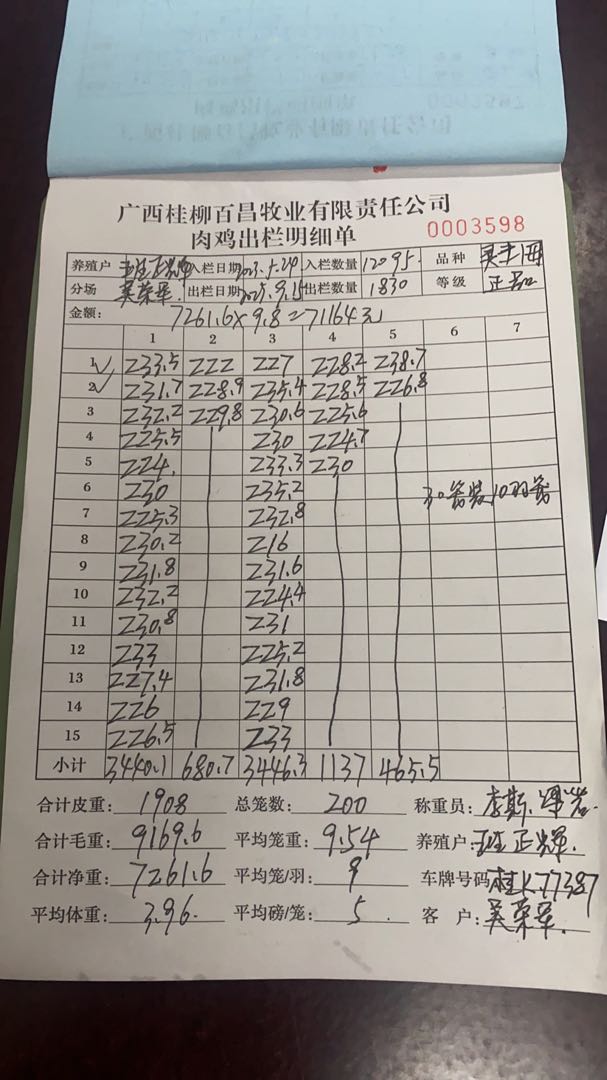 广西桂柳百昌牧业有限责任公司
肉鸡出栏明细单 0003598
养殖户 班正辉 入栏日期 2025.5.29 入栏数量 12095. 品种
分场 吴荣军. 出栏日期 2025.9.15 出栏数量 1830 等级 正品
金额: 7261.6×9.8=71164元
1 2 3 4 5 6 7
1 233.5 222 227 228.2 238.7
2 231.7 228.9 235.4 228.5 226.8
3 232.2 229.8 230.6 225.6
4 225.5 230 224.7
5 224. 233.3 230
6 230 235.2 30笼装10羽笼
7 225.3 232.8
8 230.2 216
9 231.8 231.6
10 232.2 224.4
11 230.8 231
12 233 225.2
13 227.4 231.8
14 226 229
15 226.5 233
小计 3440.1 680.7 3446.3 1137 465.5
合计皮重: 1908 总笼数: 200 称重员:
合计毛重: 9169.6 平均笼重: 9.54 养殖户: 班正辉.
合计净重: 7261.6 平均笼/羽: 9 车牌号码 桂K77387
平均体重: 3.96. 平均磅/笼: 5. 客 户: 吴荣军.